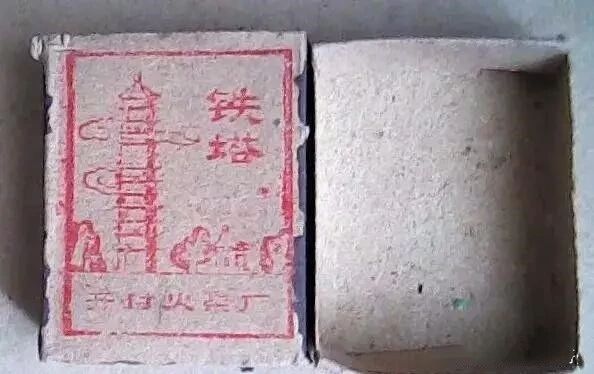 铁塔
开封火柴厂